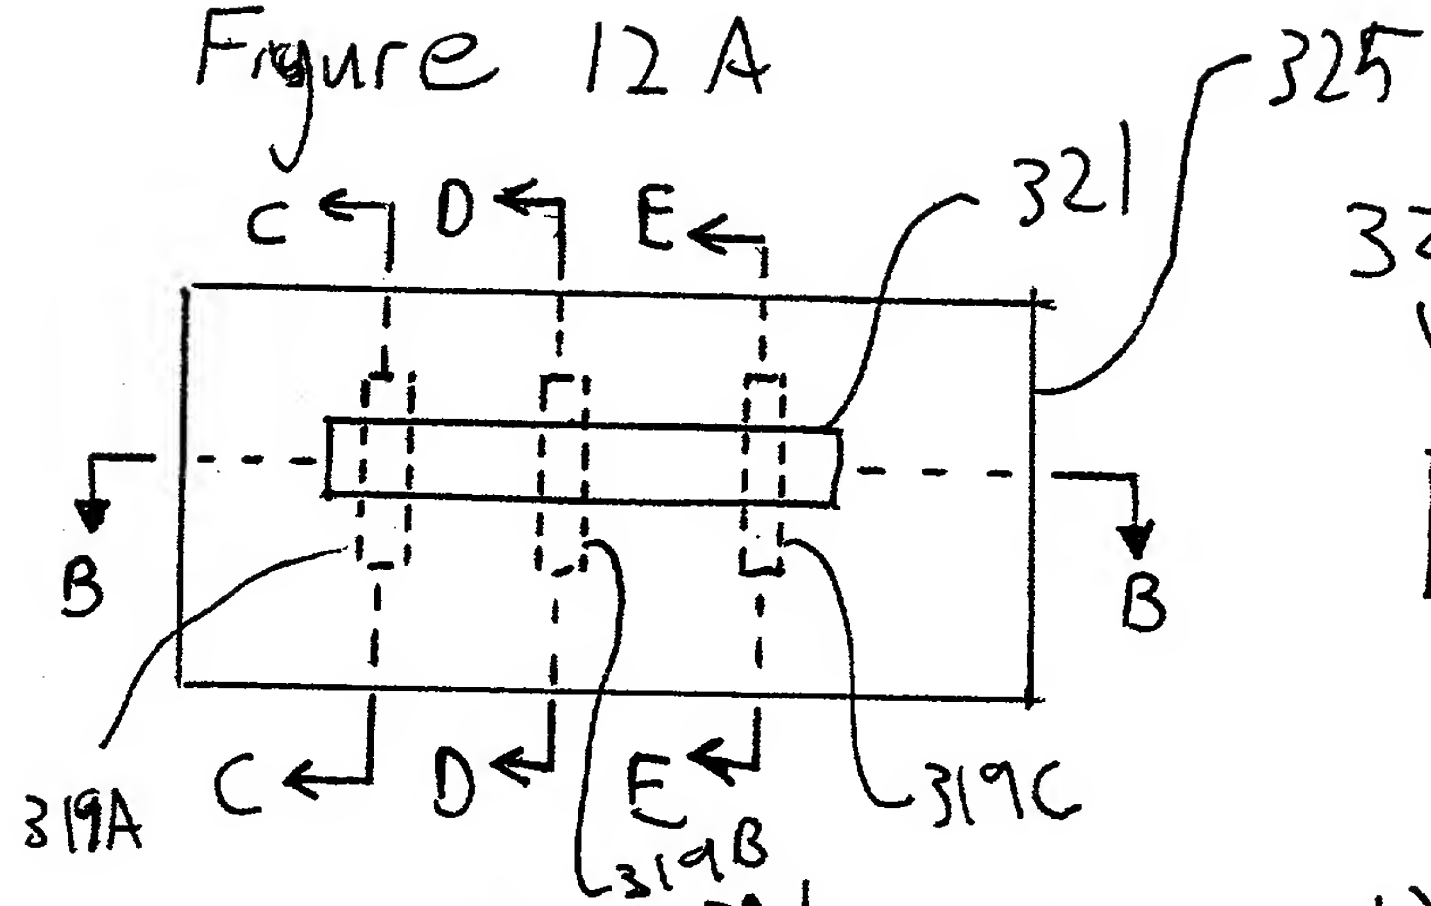 Figure 12A
325
321
C D E
B B
319A C D E 319C
319B